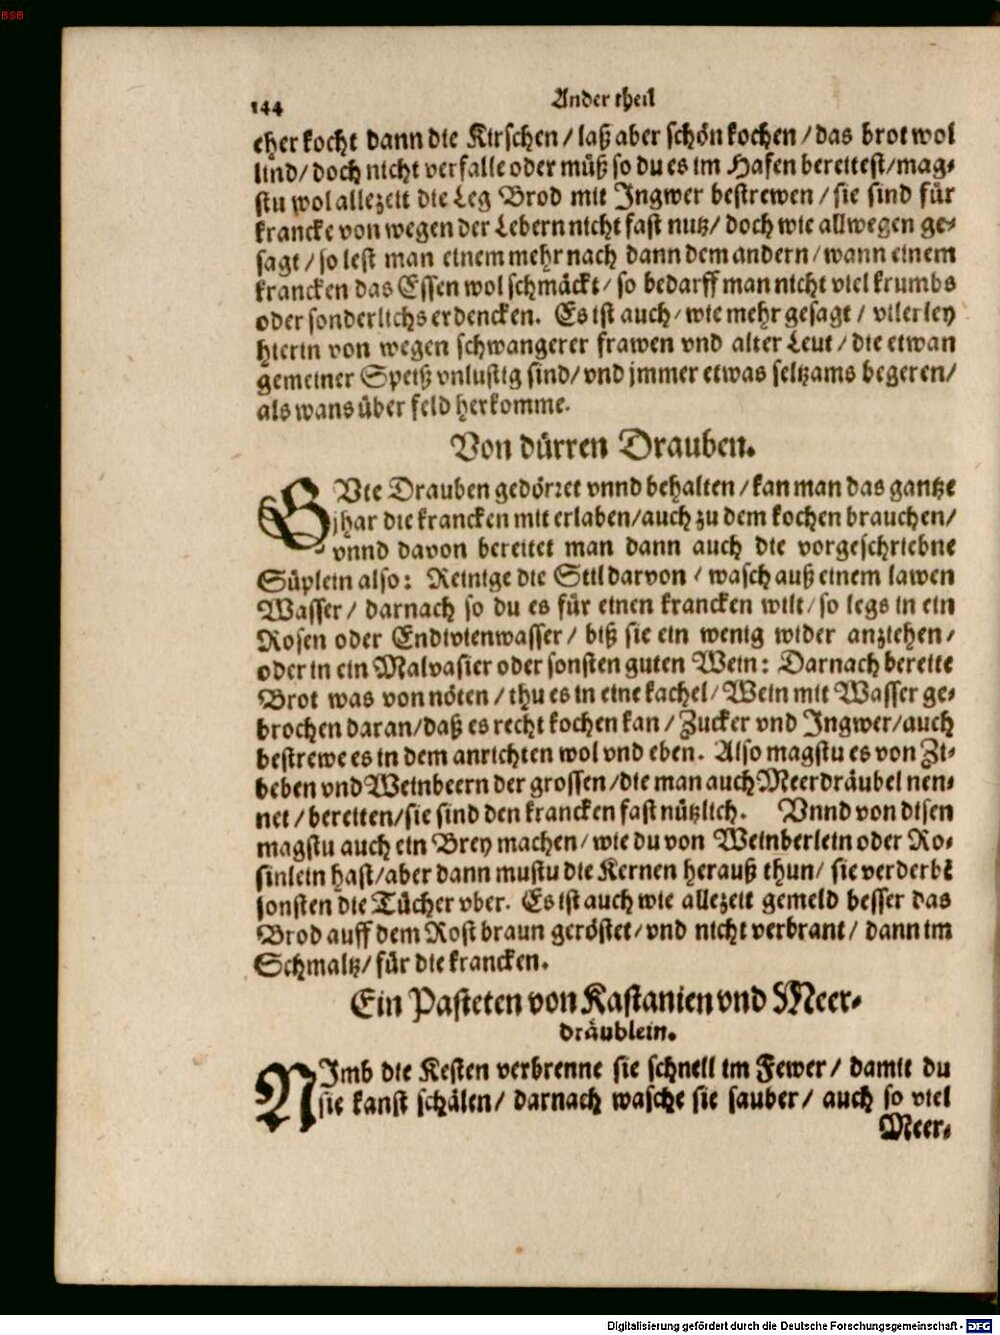 BSB
144
Ander theil
eher kocht dann die Kirschen / laß aber schön kochen / das brot wol
lind / doch nicht verfalle oder müß so du es im Hafen bereitest / mag-
stu wol allezeit die Leg Brod mit Ingwer bestrewen / sie sind für
krancke von wegen der Lebern nicht fast nutz / doch wie allwegen ge-
sagt / so lest man einem mehr nach dann dem andern / wann einem
krancken das Essen wol schmäckt / so bedarff man nicht viel krumbs
oder sonderlichs erdencken. Es ist auch / wie mehr gesagt / vilerley
hierin von wegen schwangerer frawen vnd alter Leut / die etwan
gemeiner Speiß vnlustig sind / vnd jmmer etwas seltzams begeren /
als wans über feld herkomme.
Von dürren Drauben.
GVte Drauben gedörret vnnd behalten / kan man das gantze
jhar die krancken mit erlaben / auch zu dem kochen brauchen /
vnnd davon bereitet man dann auch die vorgeschriebne
Süplein also: Reinige die Stil darvon / wasch auß einem lawen
Wasser / darnach so du es für einen krancken wilt / so legs in ein
Rosen oder Endivienwasser / biß sie ein wenig wider anziehen /
oder in ein Malvasier oder sonsten guten Wein: Darnach bereite
Brot was von nöten / thu es in eine kachel / Wein mit Wasser ge-
brochen daran / daß es recht kochen kan / Zucker vnd Ingwer / auch
bestrewe es in dem anrichten wol vnd eben. Also magstu es von Zi-
beben vnd Weinbeern der grossen / die man auch Meerdräubel nen-
net / bereiten / sie sind den krancken fast nützlich. Vnnd von disen
magstu auch ein Brey machen / wie du von Weinberlein oder Ro-
sinlein hast / aber dann mustu die Kernen herauß thun / sie verderbē
sonsten die Tücher vber. Es ist auch wie allezeit gemeld besser das
Brod auff dem Rost braun geröstet / vnd nicht verbrant / dann im
Schmaltz / für die krancken.
Ein Pasteten von Kastanien vnd Meer-
dräublein.
NImb die Kesten verbrenne sie schnell im Fewer / damit du
sie kanst schälen / darnach wasche sie sauber / auch so viel
Meer-
Digitalisierung gefördert durch die Deutsche Forschungsgemeinschaft - DFG